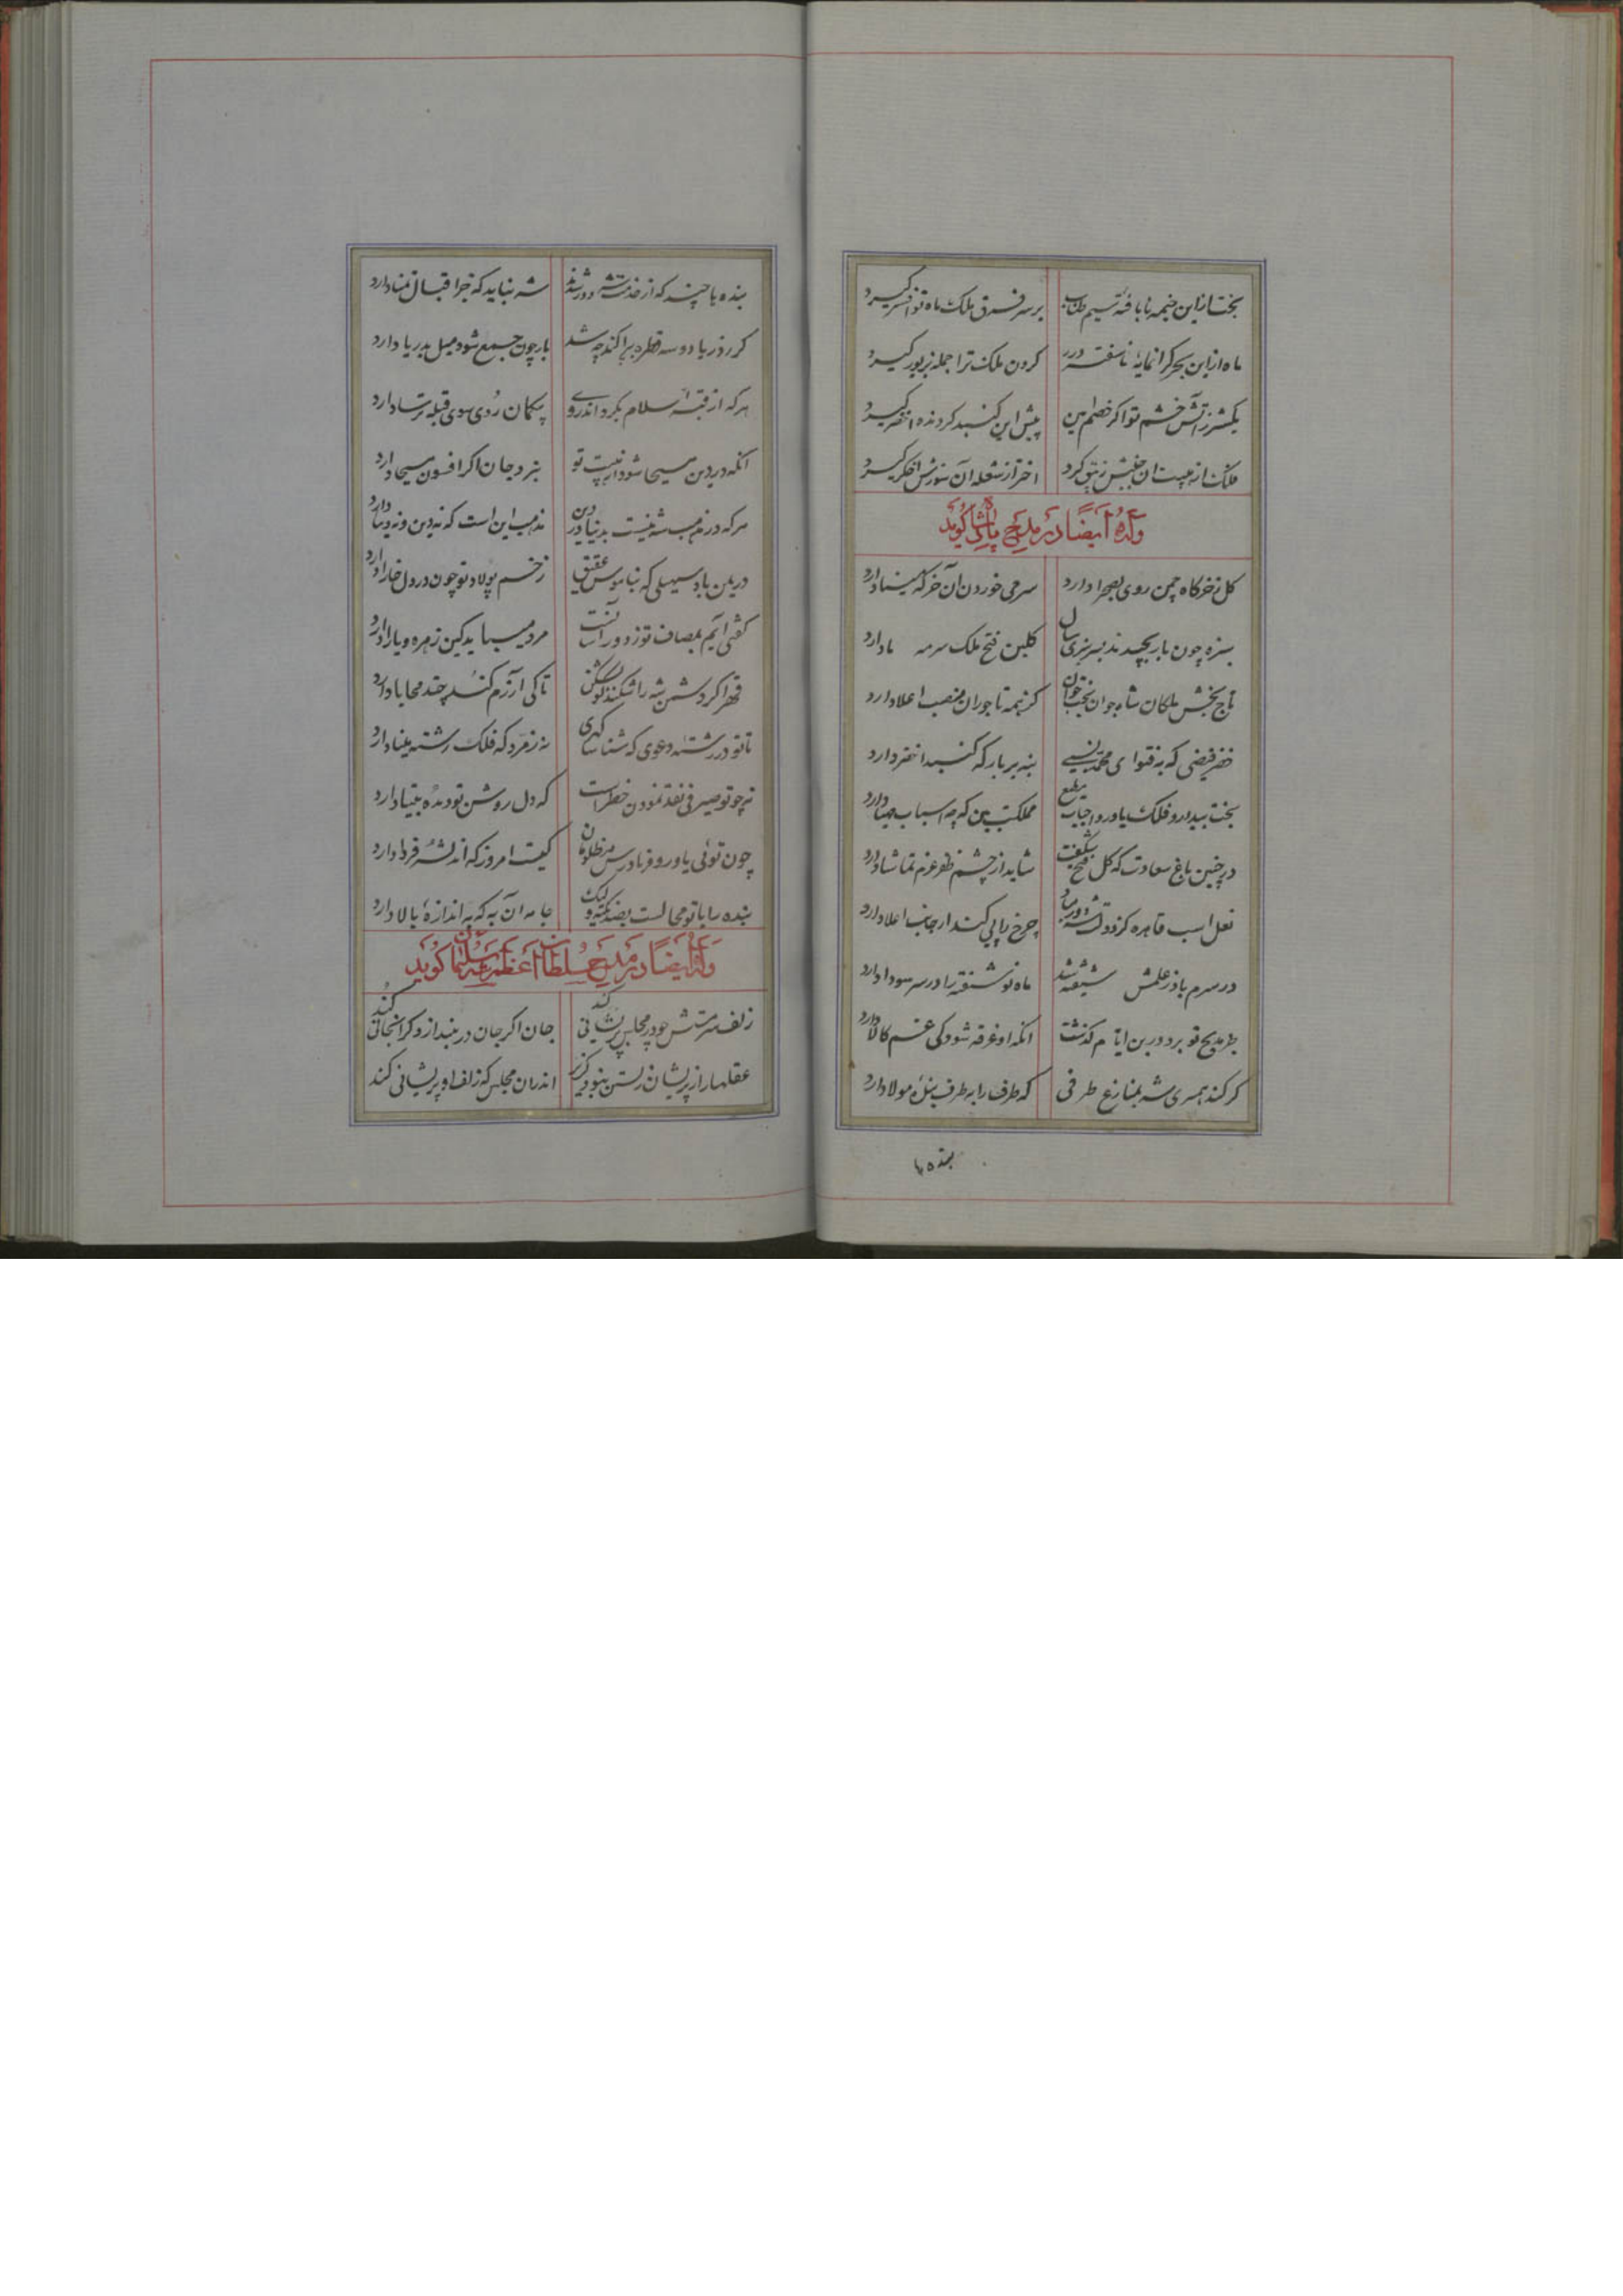 بخت از این خیمه نابافته سیم طناب برسر فرق ملک ماه تو افسر گیرد
ماه ازین بحر گرانمایه ناسفته درر گردن ملک ترا جمله بزیور گیرد
یکشرر زآتش خشم تو اگر خصم لعین پیش این گنبد گردنده اخضر گیرد
فلک از هیبت آن جنبش زیبق گیرد اختر از شعله آن سوزش اخگر گیرد
وله ایضا در مدح پادشاه گوید
کل زخرکاه چمن روی بصحرا دارد سر می خوردن آن خرکه مینا دارد
سبزه چون بار بجیدند بسر سبزی سال کلبن فتح ملک سر مه ما دارد
تاج بخش ملکان شاه جوان بخت جوان کز همه تاجوران منصب اعلا دارد
خضر فیضی که بفتوای محمد نسبی بنه بر بارکه کنبد اخضر دارد
بخت بیدار و فلک یاور و احباب مطیع مملکت بین که چه اسباب مهیا دارد
در چنین باغ سعادت که کل فتح شکفت شاید از چشم ظفر عزم تماشا دارد
نعل اسب قاهره کز دولت شه دور مباد چرخ را پی کند ار جانب اعلا دارد
در سرم باد ز علمش شیفته شد ماه نو شیفته را در سر سودا دارد
بمدیح تو برد درین ایام گذشت انکه او غرقه شود کی غم کالا دارد
کر کند همسری شه بمنازع طرفی که طرف را به طرف بنده مولا دارد
بنده با
بنده با چند که از خدمت شه دور شدند شه نباید که جز اقبال تمنا دارد
کر ز دریا دو سه قطره بپراکند چه شد باز چون جمع شود میل بدریا دارد
هرکه از قبه اسلام بکرداند روی بیکمان روی سوی قبله ترسا دارد
انکه در دین مسیحا شود از هیبت تو نبرد جان اکر افسون مسیحا دارد
هرکه در مذهب شه نیست بدنیا در دین مذهب این است که نه دین و نه دنیا دارد
در یمن باد سهیلی که بناموس عقیق زخم پولاد تو چون در دل خارا دارد
کفتی ایم بمصاف تو ز دور آسانست مرد میباید کین زهره و یارا دارد
قهر اکر دشمن شه را شکند کو بشکن تا کی آزرم کند چند محابا دارد
تا تو در رشته دعوی که شناسا کهری نه زمرد که فلک رشته مینا دارد
نه چو تو صیرفی نقد نمودن خطر است که دل روشن تو دیده بینا دارد
چون توئی یاور و فریادرس مظلومان کیست امروز که اندیشه فردا دارد
بنده را با تو مجالست بصد نکته ولیک جامه آن به که به اندازه بالا دارد
وله ایضا در مدح سلطان اعظم سلیمان گوید
زلف سرمستش چو در مجلس پریشانی کند جان اکر جان در نیندازد کرانجانی کند
عقلها را از پریشان زلف او نبود گزیر اندران مجلس که زلف او پریشانی کند